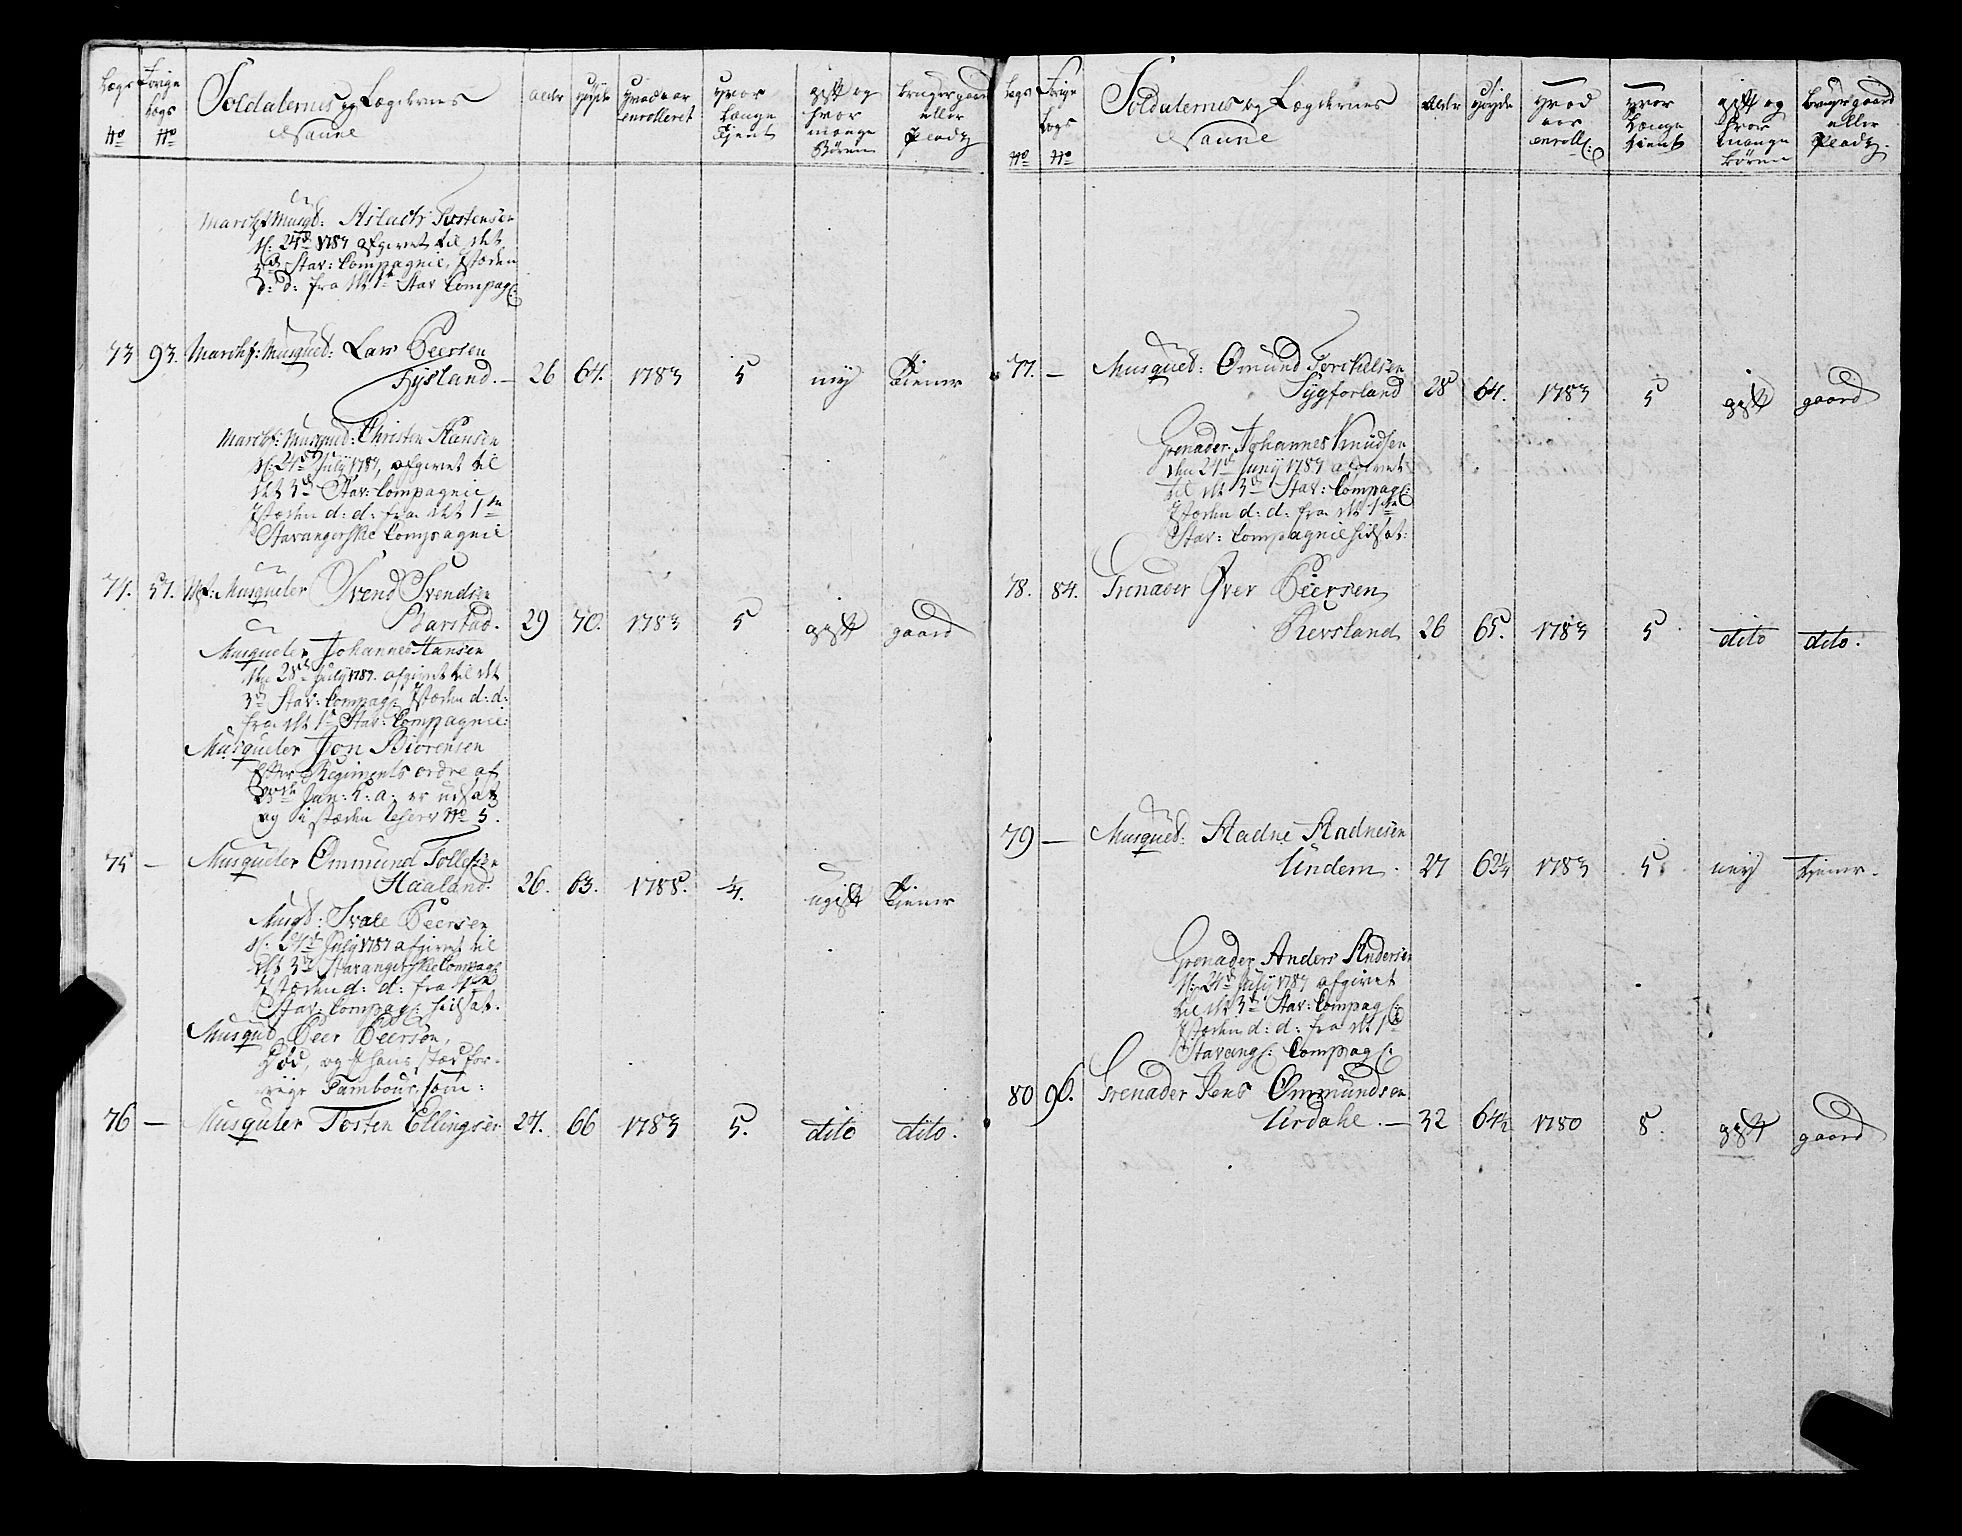 Lægs No
Forrige Lægs No
Soldaternes og Lægdernes Naune
Alder
Høyde
Hvad aar enrolleret
Hvor Længe Tient
gift og hvor mange Børen
bruger gaard eller Plads
Marchf: Musqd: Aslach Tostensen
d: 24de 1787 afgivet til det
3de Stav: Compagnie, Istæden
d: d: fra det 1te Stav Compag:
73 93. Marchf: Musquet: Lars Peersen
Fysland. — 26 64. 1783 5 ney Tiener
Marchf: Musqued: Christen Hansen
d: 24de July 1787, afgivet til
det 3de Stav: Compagnie
Istæden d: d: fra det 1te
Stavangerske Compagnie
74. 57. Mf: Musqueter Svend Svendsen
Barstad. 29 70. 1783 5 gift gaard
Musqueter Johannes Hansen
den 28de July 1787. afgivet til det
3de Stav: Compag: Istæden d: d:
fra det 1te Stav: Compagnie:
Musqueter Jon Biorensen
efter Regiments ordre af
Jan: h: a: er udsat
og i stæden Reserv No 5.
75 — Musqueter Ommund Tollefsen
Haaland. 26. 63. 1788. 1/4. ugift Tiener
Musqt: Svale Peersen
d: 24de July 1787 afgivet til
det 3de Stavangerske Compag:
Istæden d: d: fra 1te
Stav: Compag: hidsat.
Musqued Peer Peersen,
Død, og i hans stæd for-
rige Tambour, som:
76 — Musqueter Tosten Ellingsen 27. 66 1783 5. dito dito.
Lægs No
Forrige Lægs No
Soldaternes og Lægdernes Naune
Alder
Høyde
Hvad aar enroll:
Hvor Længe Tient
gift og hvor mange børen
bruger gaard eller Plads.
77. — Musquet: Omund Torchelsen
Sygforland 28 64. 1783 5 gift gaard
Grenader Johannes Knudsen
den 24de Juny 1787 afgivet
til det 3de Stav: Compag:
Istæden d: d: fra det 1te
Stav: Compagnie hidsat:
78. 84. Grenader Iver Peersen
Revsland 26 65. 1783 5 dito dito.
79 — Musquet: Aadne Aadnesen
Undem. 27 62 1/4 1783 5 ney Tiener.
Grenader Anders Andersen
d: 24de July 1787 afgivet
til det 3de Stav: Compag:
Istæden d: d: fra det 1te
Stavang: Compag:
80 96. Grenader Jens Ommundsen
Urdahl. — 32 64 1/2 1780 8. gift gaard